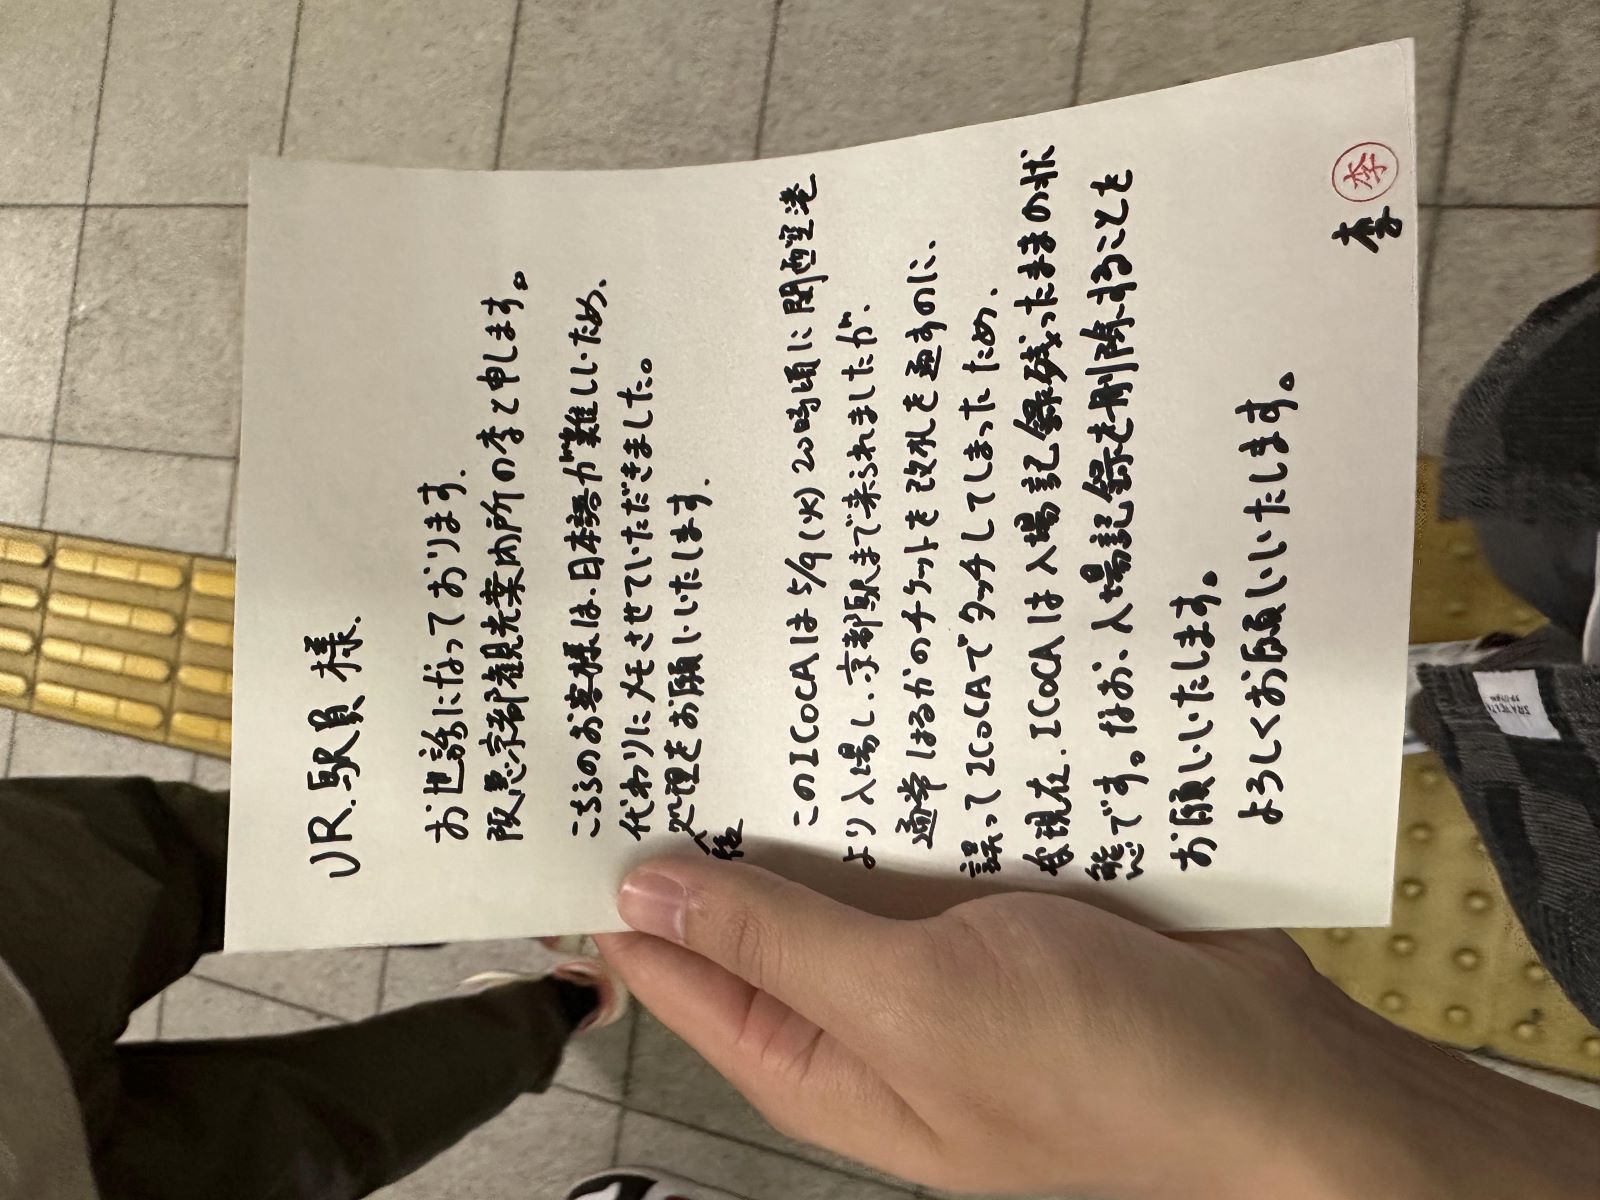 JR.駅員様.
お世話になっております.
阪急京都観光案内所の李と申します。
こちらのお客様は、日本語が難しいため、
代わりにメモさせていただきました。
処理をお願いいたします.
後
このICOCAは5/9(火)20時頃に関西空港
より入場し、京都駅まで来られましたが、
通常はるかのチケットを改札を通すのに、
誤ってICOCAでタッチしてしまったため、
現在、ICOCAは入場記録残ったままの状
態です。なお、入場記録を削除することを
お願いいたします。
よろしくお願いいたします。
李 李